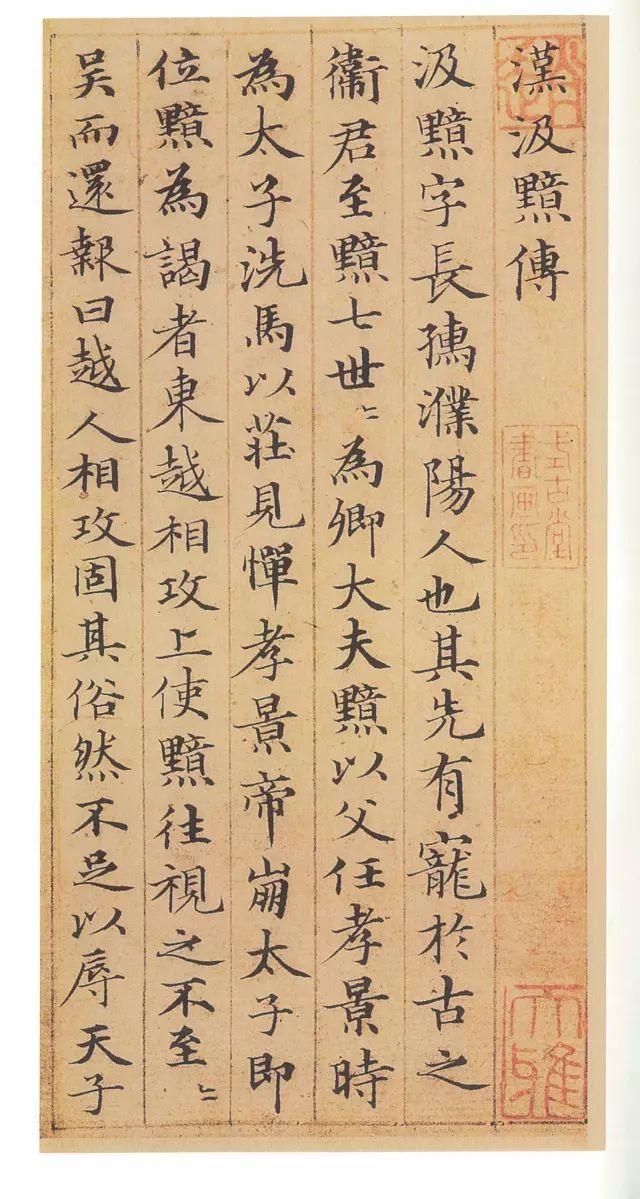 漢汲黯傳
汲黯字長孺濮陽人也其先有寵於古之
衞君至黯七世〻為卿大夫黯以父任孝景時
為太子洗馬以莊見憚孝景帝崩太子即
位黯為謁者東越相攻上使黯往視之不至〻
吴而還報曰越人相攻固其俗然不足以辱天子
式古堂
書畫印
大雅